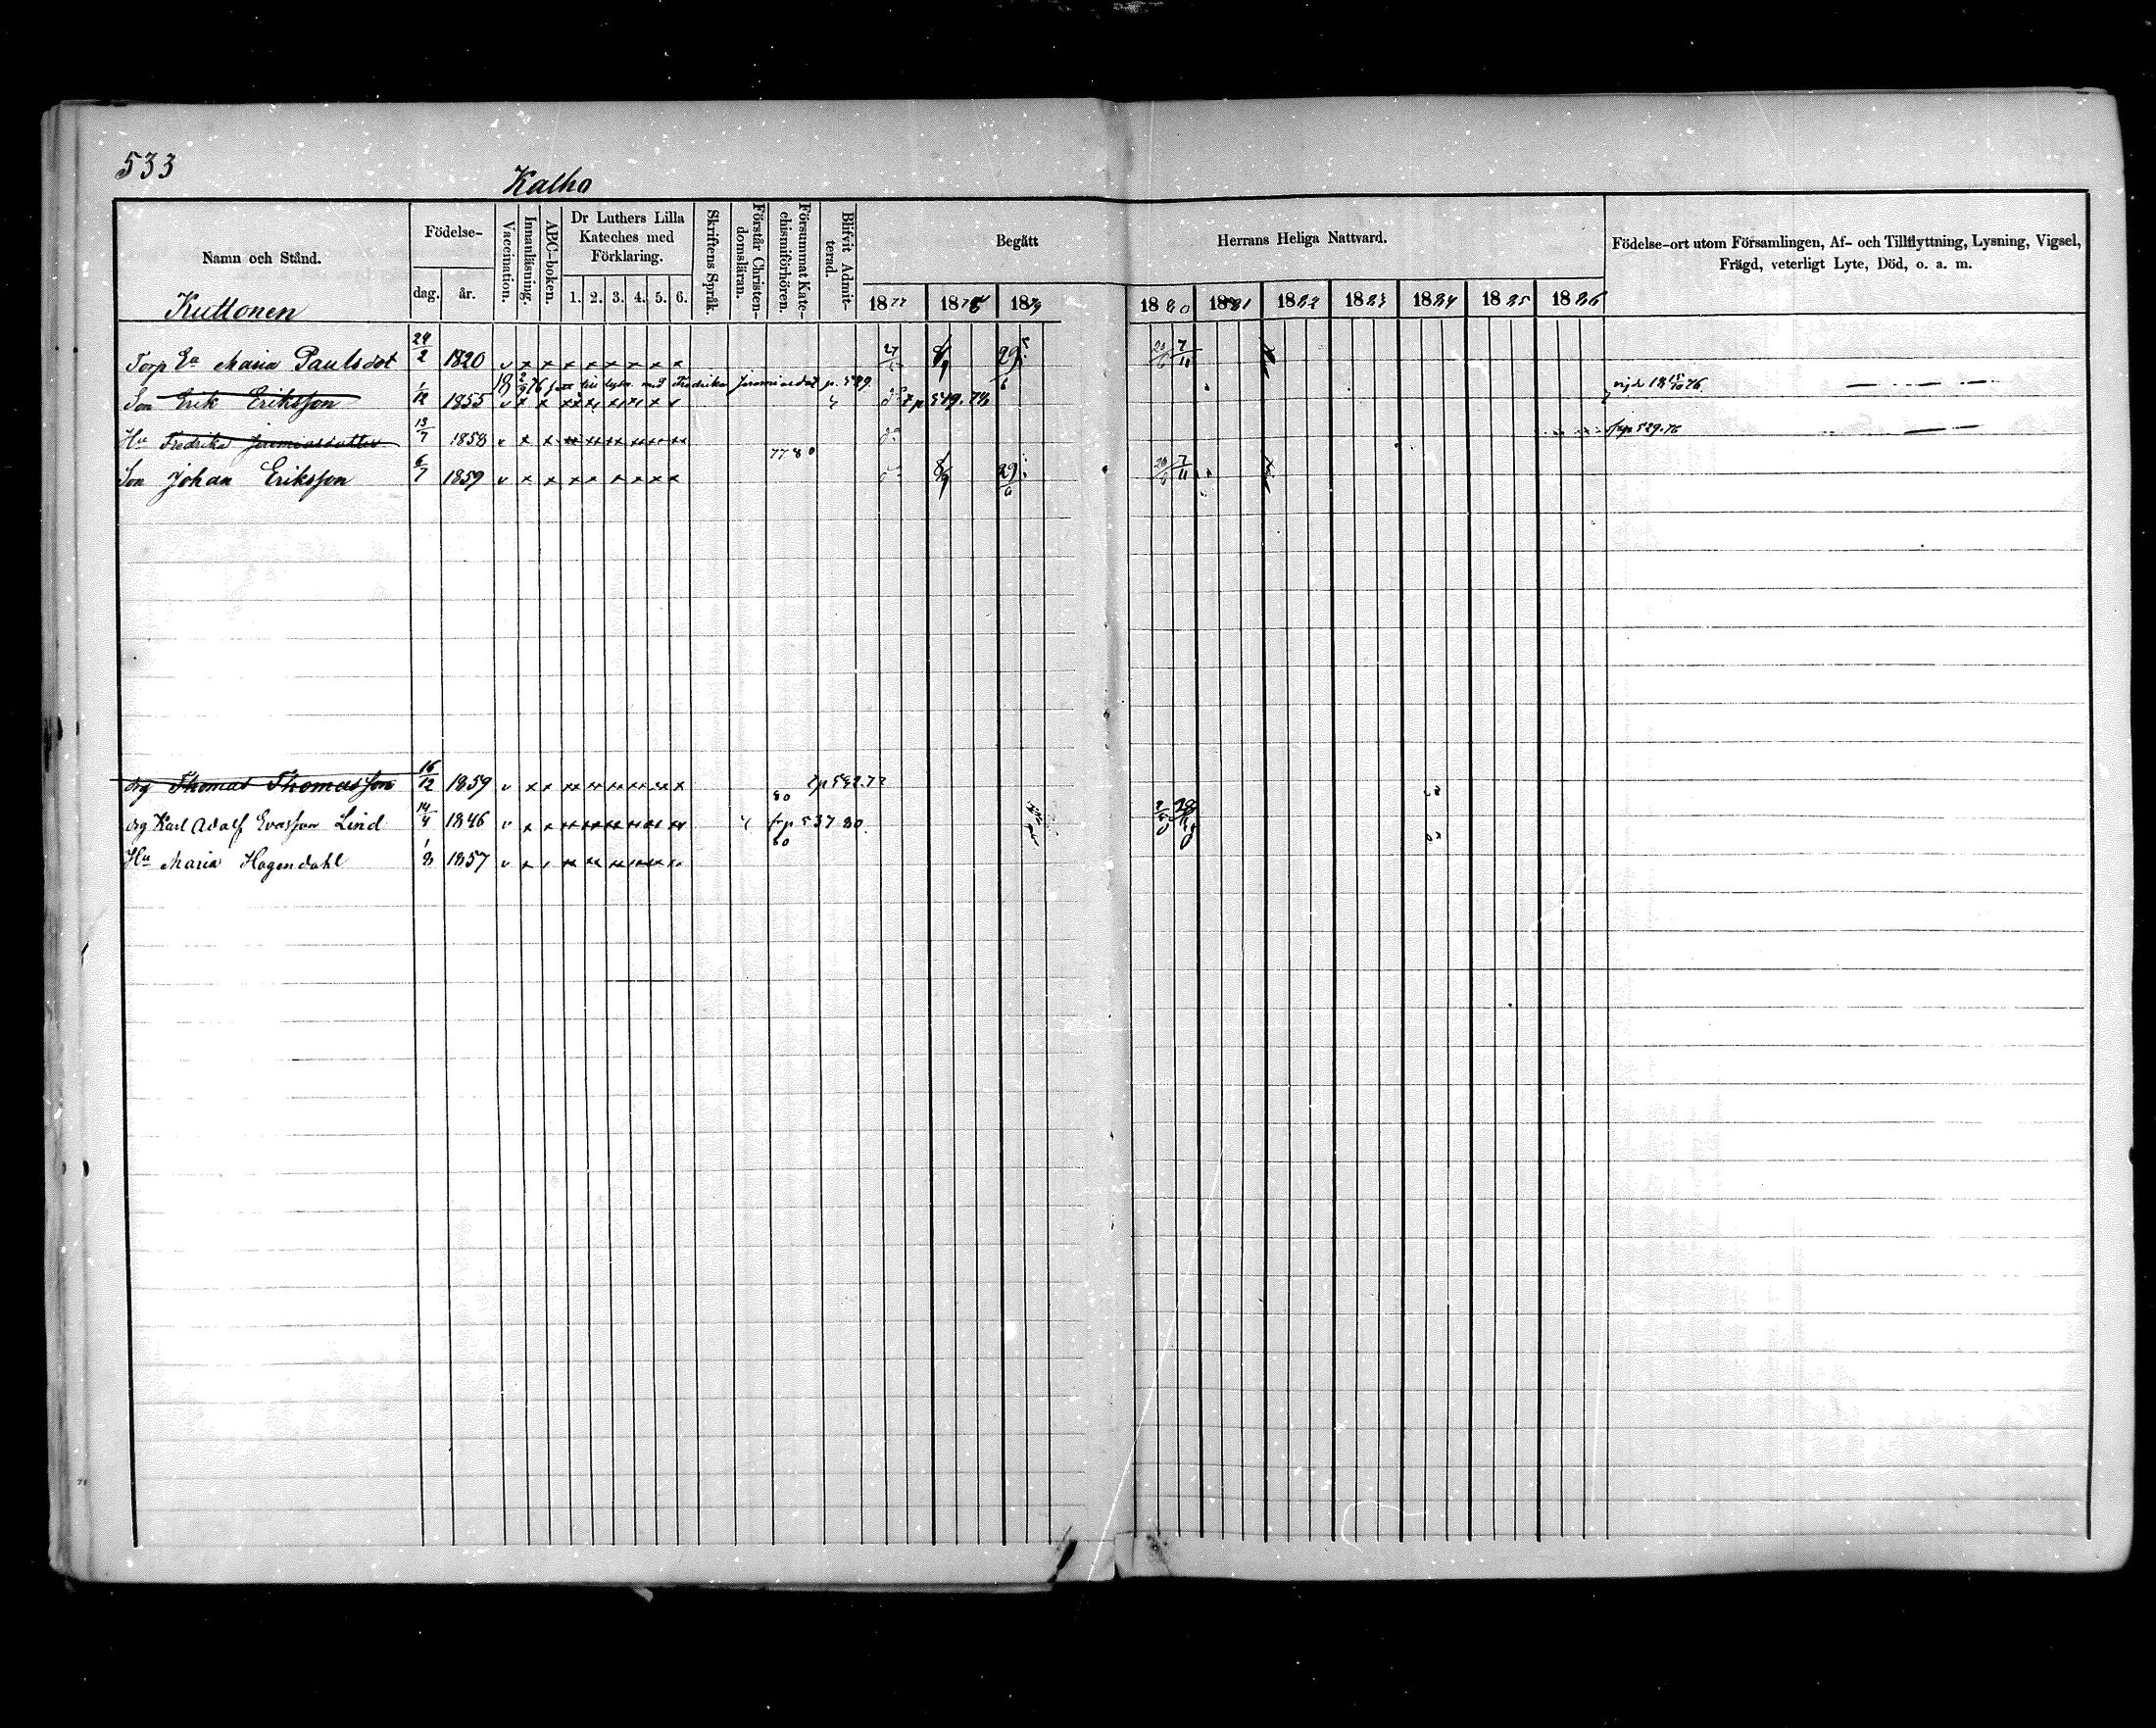 533
Kalho
Namn och Stånd.
Födelse-
dag. år.
Vaccination.
Innanläsning.
ABC-boken.
Dr Luthers Lilla
Kateches med
Förklaring.
1. 2. 3. 4. 5. 6.
Skriftens Språk.
Förstår Christen-
domsläran.
Försummat Kate-
chismiförhören.
Blifvit Admit-
terad.
Begått Herrans Heliga Nattvard.
1877 1878 1879 1880 1881 1882 1883 1884 1885 1886
Födelse-ort utom Församlingen, Af- och Tillflyttning, Lysning, Vigsel,
Frägd, veterligt Lyte, Död, o. a. m.
Kuttonen
Torp Ea Maria Paulsdot 24/2 1820 v x x x x x x x x 8/9 29/6 7/11
18 2/9 76 till lysn. med Fredrika Jeremiasdot p. 529
Son Erik Eriksson 1/12 1855 v x x
Hu Fredrika Jeremiasdotter 13/7 1858 v x x
7780
Son Johan Eriksson 6/7 1859 v x x x x x x x x 8/9 29/6 7/11
drg Thomas Thomasson 16/12 1859 v x x
80
drg Karl Adolf Evasson Lind 14/4 1846 v x x frp 537 80
80
Hu Maria Hagendahl 1/8 1857 v x x